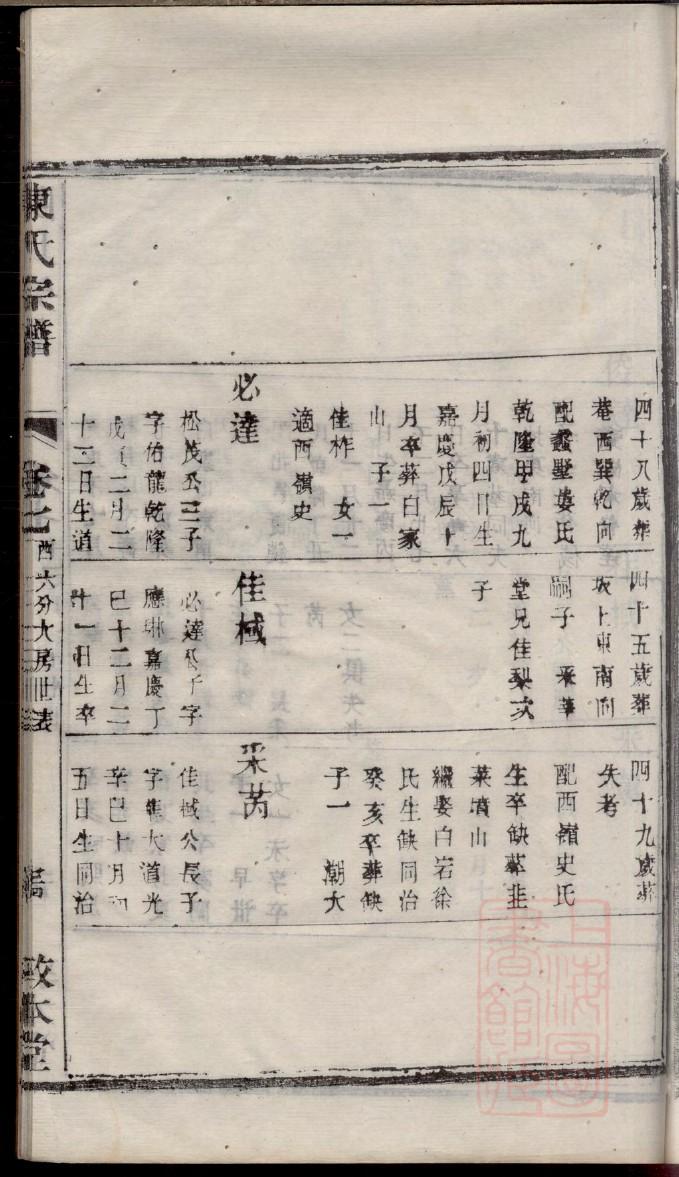 四十八歲葬
菴西巽乾向
配蠡墅婁氏
乾隆甲戌九
月初四日生
嘉慶戊辰十
月卒葬白家
山　子一
佳柞　女一
適西嶺史
必達
松茂公三子
字佑龍乾隆
戊寅二月二
十二日生道
四十五歲葬
坂上東南向
嗣子　采華
堂兄佳梨次
子
佳棫
必達公子字
應琳嘉慶丁
巳十二月二
十一日生卒
四十九歲葬
失考
配西嶺史氏
生卒缺葬韭
菜墳山
繼娶白岩徐
氏生缺同治
癸亥卒葬缺
子一　潮大
采芮
佳棫公長子
字雋大道光
辛巳十月初
五日生同治
陳氏宗譜
卷之
西六分大房世表
敦本堂
上海圖書館藏